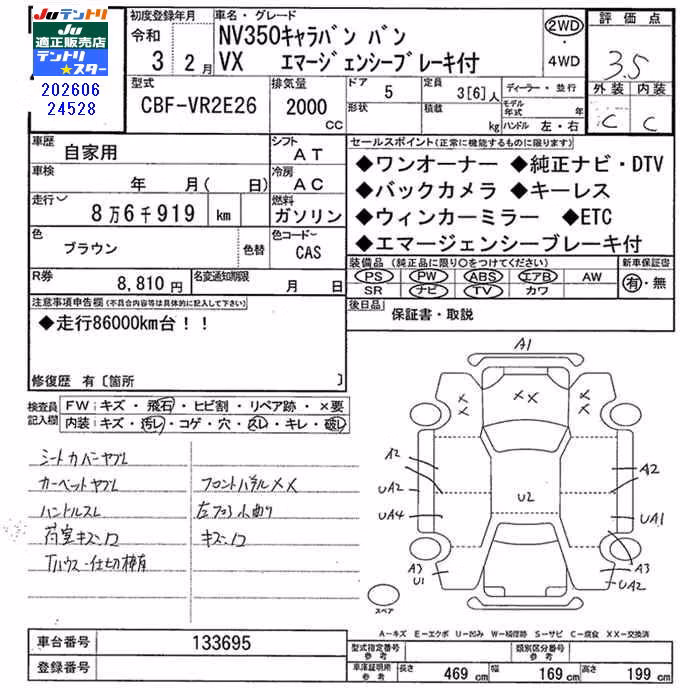 Juテントリ
JU
適正販売店
テントリ
★スター
202606
24528
初度登録年月
令和
3 2月
車名・グレード
NV350キャラバン バン
VX エマージェンシーブレーキ付
2WD
・
4WD
評価点
3.5
外装 内装
C C
型式
CBF-VR2E26
排気量
2000
CC
ドア 5
形状
定員 3[6]人
積載 kg
ディーラー・並行
モデル年式 年
ハンドル 左・右
車歴 自家用
シフト AT
車検 年 月( 日)
冷房 AC
走行 8万6千919 km
燃料 ガソリン
色 ブラウン 色替
色コードー CAS
R券 8,810円
名変通知期限 月 日
セールスポイント(正常に機能するものに限ります)
◆ワンオーナー ◆純正ナビ・DTV
◆バックカメラ ◆キーレス
◆ウィンカーミラー ◆ETC
◆エマージェンシーブレーキ付
装備品 (純正品に限り〇をつけてください)
PS PW ABS エアB AW
SR ナビ TV カワ
新車保証書
有・無
後日品 保証書・取説
注意事項申告欄(不具合内容等は具体的に記入して下さい)
◆走行86000km台!!
修復歴 有〔箇所 〕
検査員
記入欄
FW:キズ・飛石・ヒビ割・リペア跡・×要
内装:キズ・汚レ・コゲ・穴・スレ・キレ・破レ
シートカバーヤブレ
カーペットヤブレ
ハンドルスレ
荷室キズ・凹
フロントパネルXX
キズ・凹
A1
X X
X X
X X
A2
UA2
UA4
A3
U1
U2
A2
UA1
A3
UA2
スペア
A-キズ E-エクボ U-凹み W-補修跡 S-サビ C-腐食 XX-交換済
車台番号 133695
登録番号
型式指定番号
参考
類別区分番号
参考
車庫証明所
参考
長さ 469 cm 幅 169 cm 高さ 199 cm